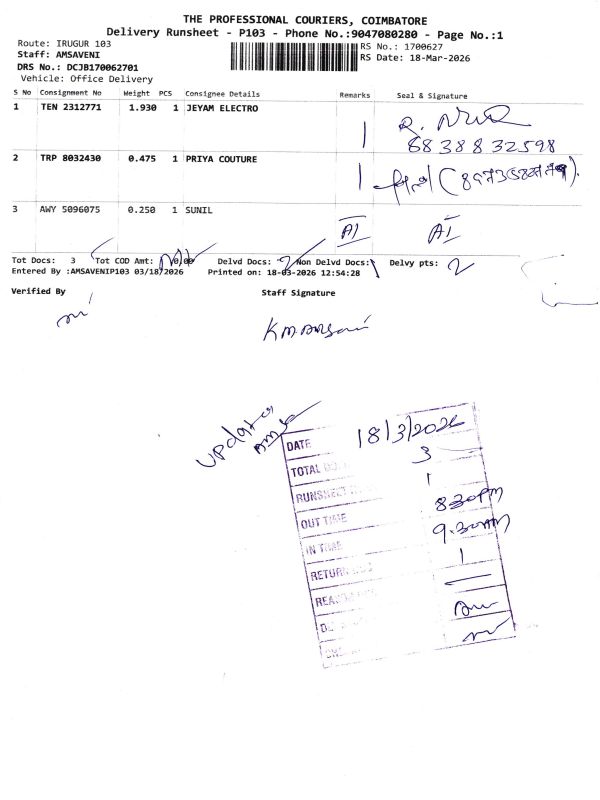 THE PROFESSIONAL COURIERS, COIMBATORE
Delivery Runsheet - P103 - Phone No.:9047080280 - Page No.:1
Route: IRUGUR 103
RS No.: 1700627
Staff: AMSAVENI
RS Date: 18-Mar-2026
DRS No.: DCJB170062701
Vehicle: Office Delivery
S No Consignment No Weight PCS Consignee Details Remarks Seal & Signature
1 TEN 2312771 1.930 1 JEYAM ELECTRO
6838832598
2 TRP 8032430 0.475 1 PRIYA COUTURE
3 AWY 5096075 0.250 1 SUNIL AI AI
Tot Docs: 3 Tot COD Amt: 0.00 Delvd Docs: 2 Non Delvd Docs: 1 Delvy pts: 2
Entered By :AMSAVENIP103 03/18/2026 Printed on: 18-03-2026 12:54:28
Verified By Staff Signature
DATE 18/3/2026
TOTAL 3
RUNSHEET 1
OUT TIME 8.30PM
IN TIME 9.30AM
RETURN 1